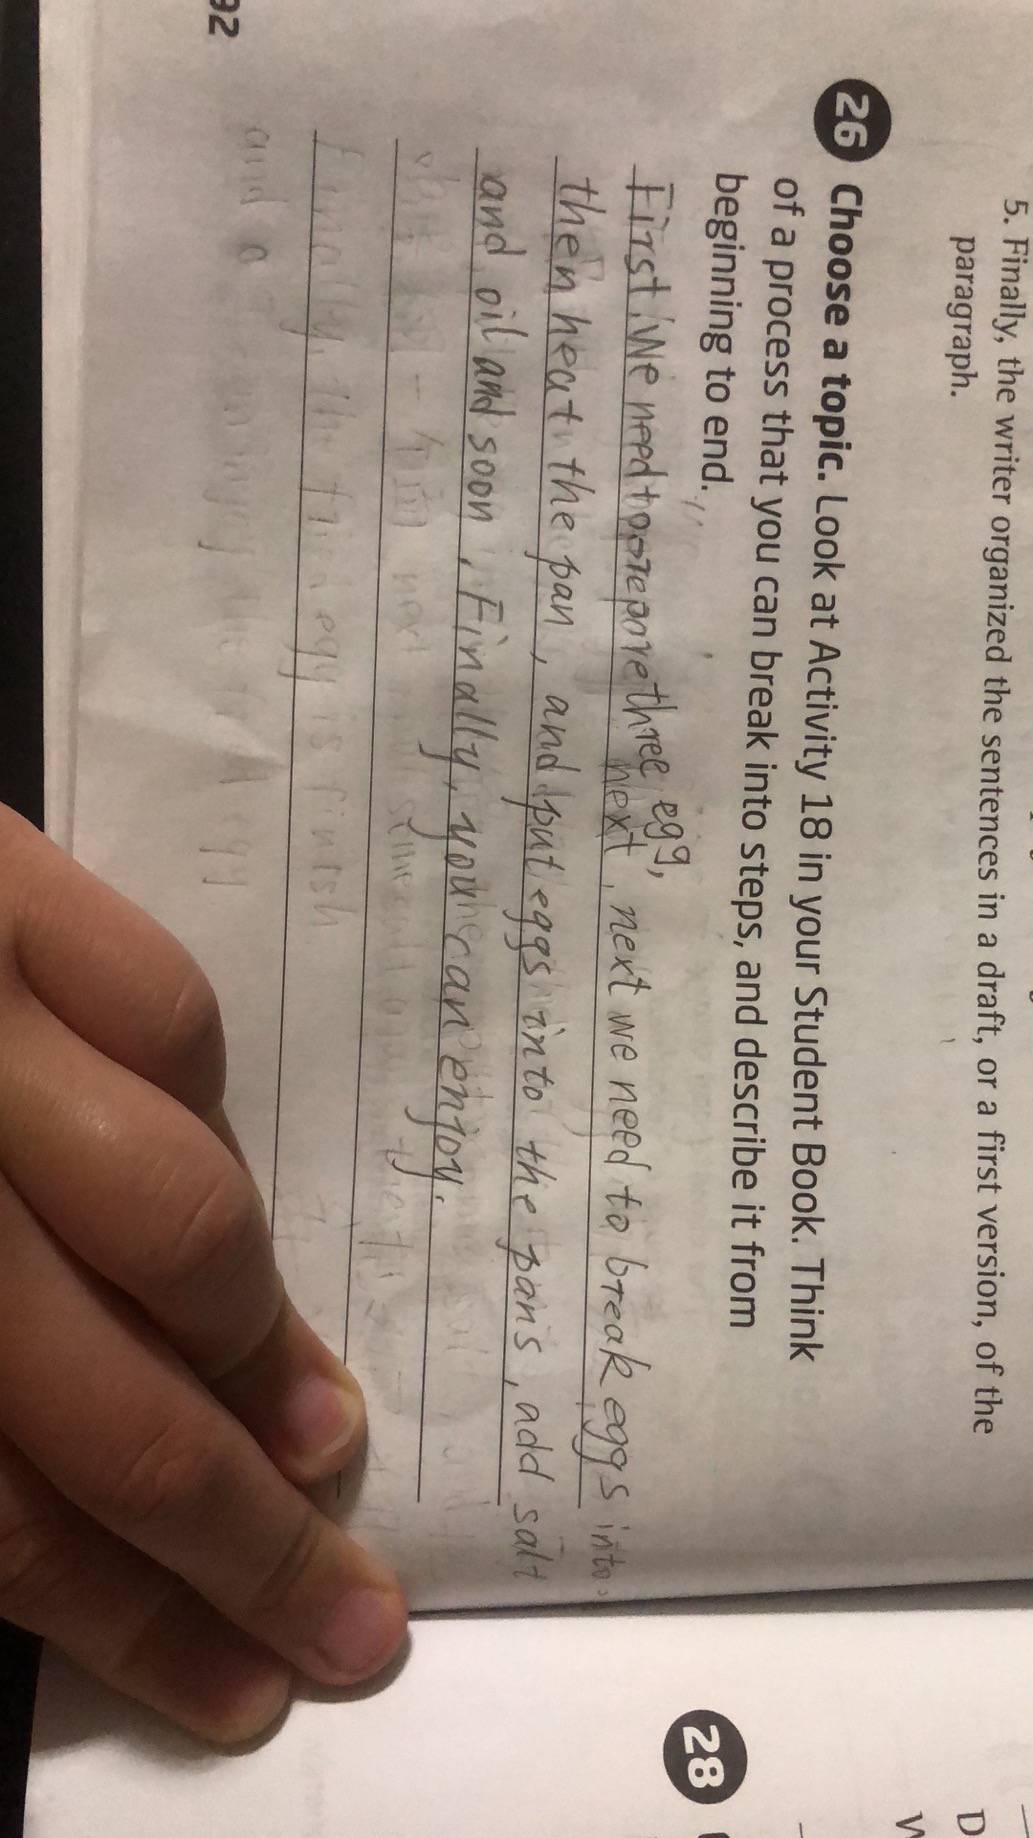 5. Finally, the writer organized the sentences in a draft, or a first version, of the
paragraph.
26 Choose a topic. Look at Activity 18 in your Student Book. Think
of a process that you can break into steps, and describe it from
beginning to end.
First, We need to prepare three egg,
next, next we need to break eggs into
then heat the pan, and put eggs into the pans, add salt
and oil and soon, Finally, you can enjoy.
Finally, the fried egg is finish
92
28